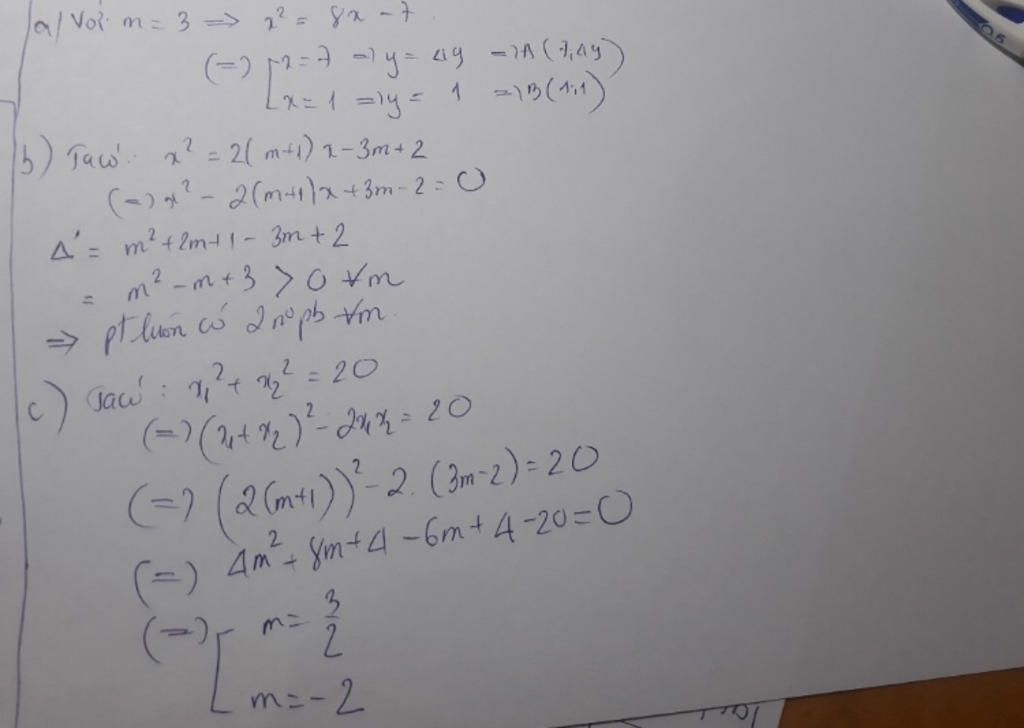 a/ Với m = 3 => x² = 8x - 7
(=) [ x = 7 => y = 49 => A(7,49)
x = 1 => y = 1 => B(1,1)
b) Ta có: x² = 2(m+1)x - 3m + 2
(=) x² - 2(m+1)x + 3m - 2 = 0
Δ' = m² + 2m + 1 - 3m + 2
= m² - m + 3 > 0 ∀m
=> pt luôn có 2 no pb ∀m.
c) Ta có: x₁² + x₂² = 20
(=) (x₁ + x₂)² - 2x₁x₂ = 20
(=) (2(m+1))² - 2. (3m-2) = 20
(=) 4m² + 8m + 4 - 6m + 4 - 20 = 0
(=) [ m = 3/2
m = -2